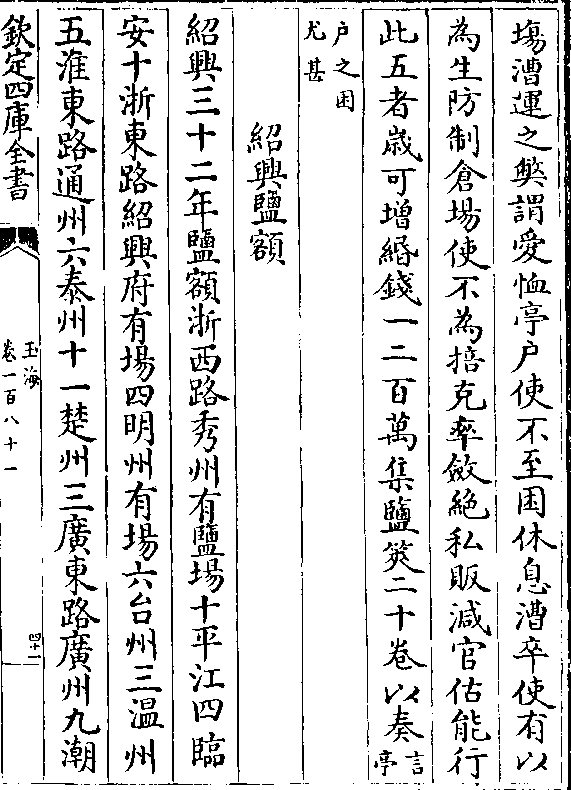 塲漕運之弊謂愛恤亭户使不至困休息漕卒使有以
為生防制倉場使不為掊克率斂絶私販減官估能行
此五者嵗可增緡錢一二百萬集鹽筴二十卷以奏言亭
户之困尤甚
紹興鹽額
紹興三十二年鹽額浙西路秀州有鹽場十平江四臨
安十浙東路紹興府有場四明州有場六台州三温州
五淮東路通州六泰州十一楚州三廣東路廣州九潮
欽定四庫全書
玉海
卷一百八十一
四十一